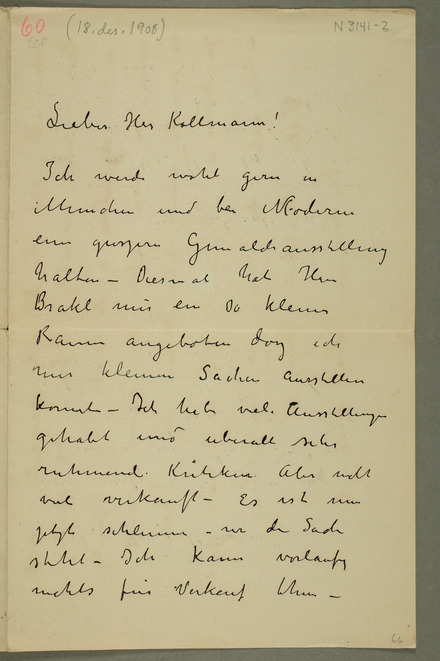 60 (18. des. 1908) N 3141-2
60
Lieber Herr Kollmann!
Ich werde wohl gern in
München und bei Moderne
eine groszere Gemaldeausstellung
halten – Diesmal hat Herr
Brakl mir ein so kleines
Raum angeboten dasz ich
nur kleinen Sachen ausstellen
konnte – Ich habe viele Ausstellungen
gehabt und uberall sehr
ruhmende Kritiken Aber nicht
viel verkauft – Es ist nun
jetzt schlimm – wie die Sache
steht – Ich kann vorlaufig
nichts fur Verkauf thun –
66